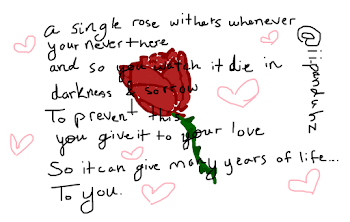 a single rose withers whenever
your never there
and so you watch it die in
darkness & sorrow
To prevent this
you give it to your love
So it can give many years of life...
To you.
@iipanduhz